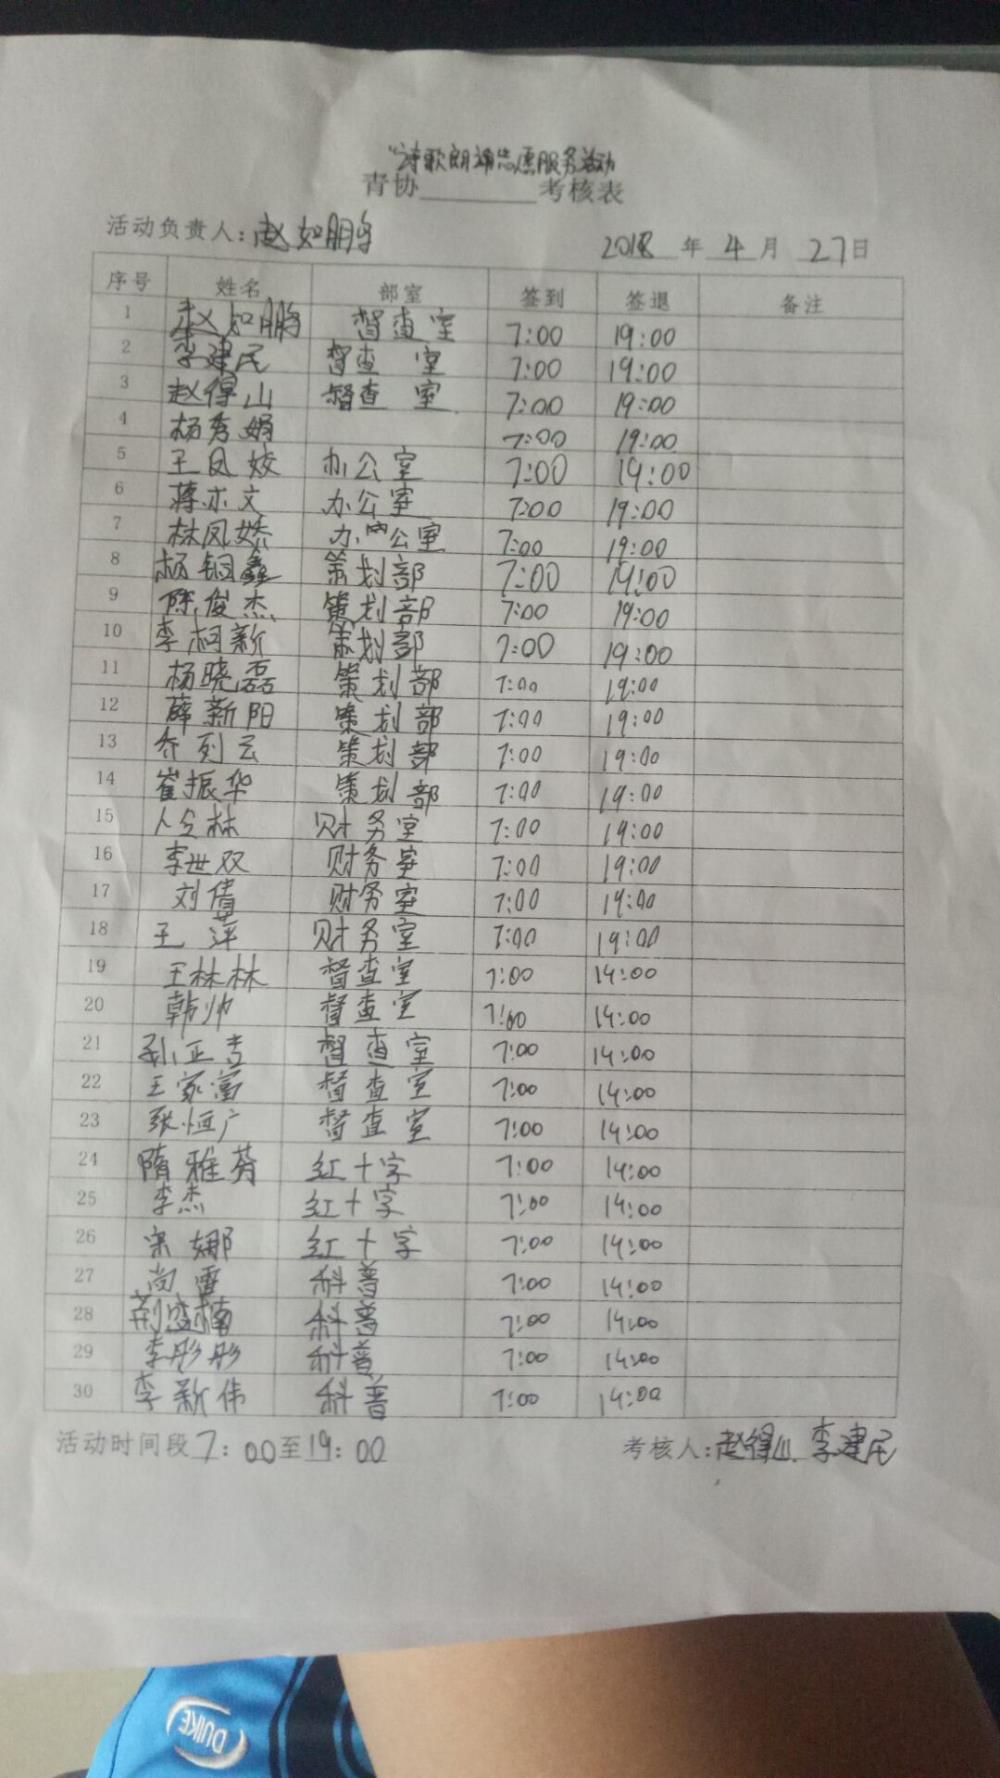 "诗歌朗诵志愿服务活动
青协________考核表
活动负责人:赵如鹏 2018 年 4 月 27日
序号 姓名 部室 签到 签退 备注
1 赵如鹏 督查室 7:00 19:00
2 李建民 督查室 7:00 19:00
3 赵得山 督查室 7:00 19:00
4 杨秀娟 7:00 19:00
5 王凤姣 办公室 7:00 19:00
6 蒋亦文 办公室 7:00 19:00
7 林凤娇 办公室 7:00 19:00
8 杨铜鑫 策划部 7:00 19:00
9 陈俊杰 策划部 7:00 19:00
10 李柯新 策划部 7:00 19:00
11 杨晓磊 策划部 7:00 19:00
12 薛新阳 策划部 7:00 19:00
13 乔列云 策划部 7:00 19:00
14 崔振华 策划部 7:00 19:00
15 财务室 7:00 19:00
16 李世双 财务室 7:00 19:00
17 刘倩 财务室 7:00 19:00
18 王萍 财务室 7:00 19:00
19 王林林 督查室 7:00 14:00
20 韩帅 督查室 7:00 14:00
21 孙正吉 督查室 7:00 14:00
22 王家富 督查室 7:00 14:00
23 张恒广 督查室 7:00 14:00
24 隋雅芬 红十字 7:00 14:00
25 李杰 红十字 7:00 14:00
26 宋娜 红十字 7:00 14:00
27 尚雪 科普 7:00 14:00
28 荆楚楠 科普 7:00 14:00
29 李彤彤 科普 7:00 14:00
30 李新伟 科普 7:00 14:00
活动时间段 7:00至19:00 考核人:赵得山、李建民
DUIKE